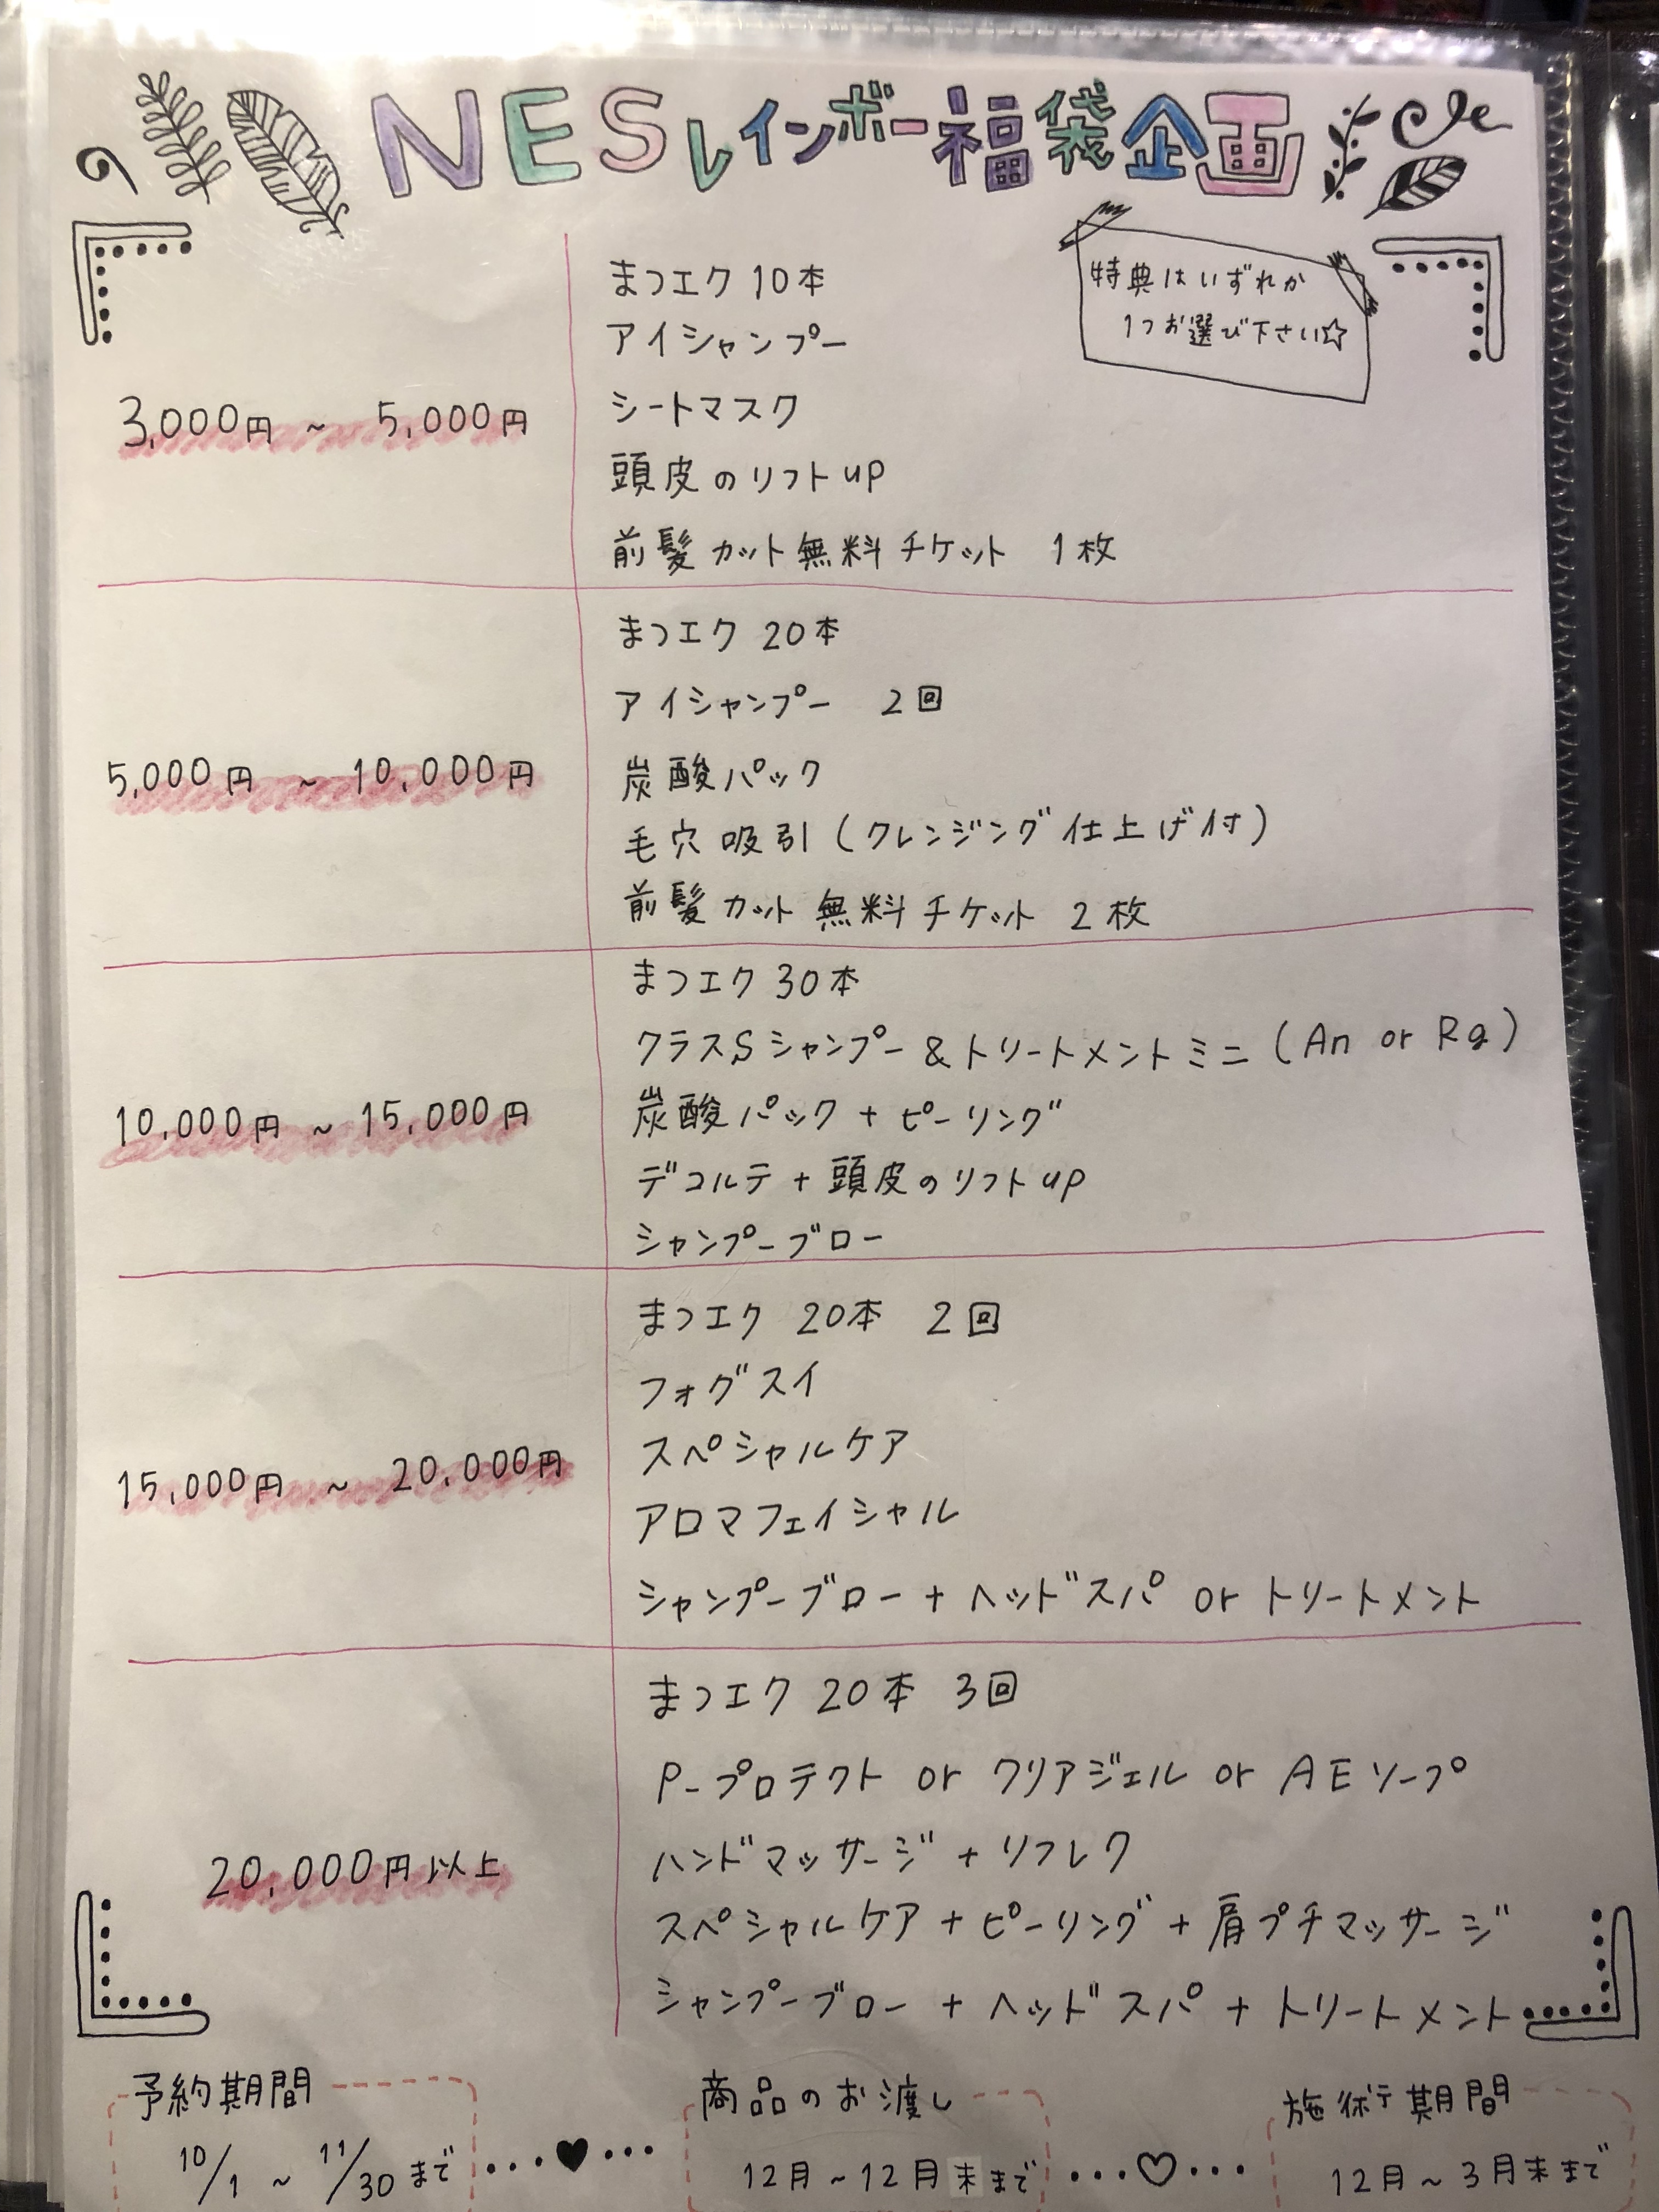 NESレインボー福袋企画
特典はいずれか
1つお選び下さい☆
3,000円 ~ 5,000円
まつエク 10本
アイシャンプー
シートマスク
頭皮のリフトup
前髪カット無料チケット 1枚
5,000円 ~ 10,000円
まつエク 20本
アイシャンプー 2回
炭酸パック
毛穴吸引(クレンジング仕上げ付)
前髪カット無料チケット 2枚
10,000円 ~ 15,000円
まつエク 30本
クラスSシャンプー&トリートメントミニ(An or Rg)
炭酸パック+ピーリング
デコルテ+頭皮のリフトup
シャンプーブロー
15,000円 ~ 20,000円
まつエク 20本 2回
フォグスイ
スペシャルケア
アロマフェイシャル
シャンプーブロー+ヘッドスパ or トリートメント
20,000円以上
まつエク 20本 3回
P-プロテクト or クリアジェル or AEソープ
ハンドマッサージ+リフレク
スペシャルケア+ピーリング+肩プチマッサージ
シャンプーブロー+ヘッドスパ+トリートメント
予約期間
10/1 ~ 11/30まで
商品のお渡し
12月~12月末まで
施術期間
12月~3月末まで